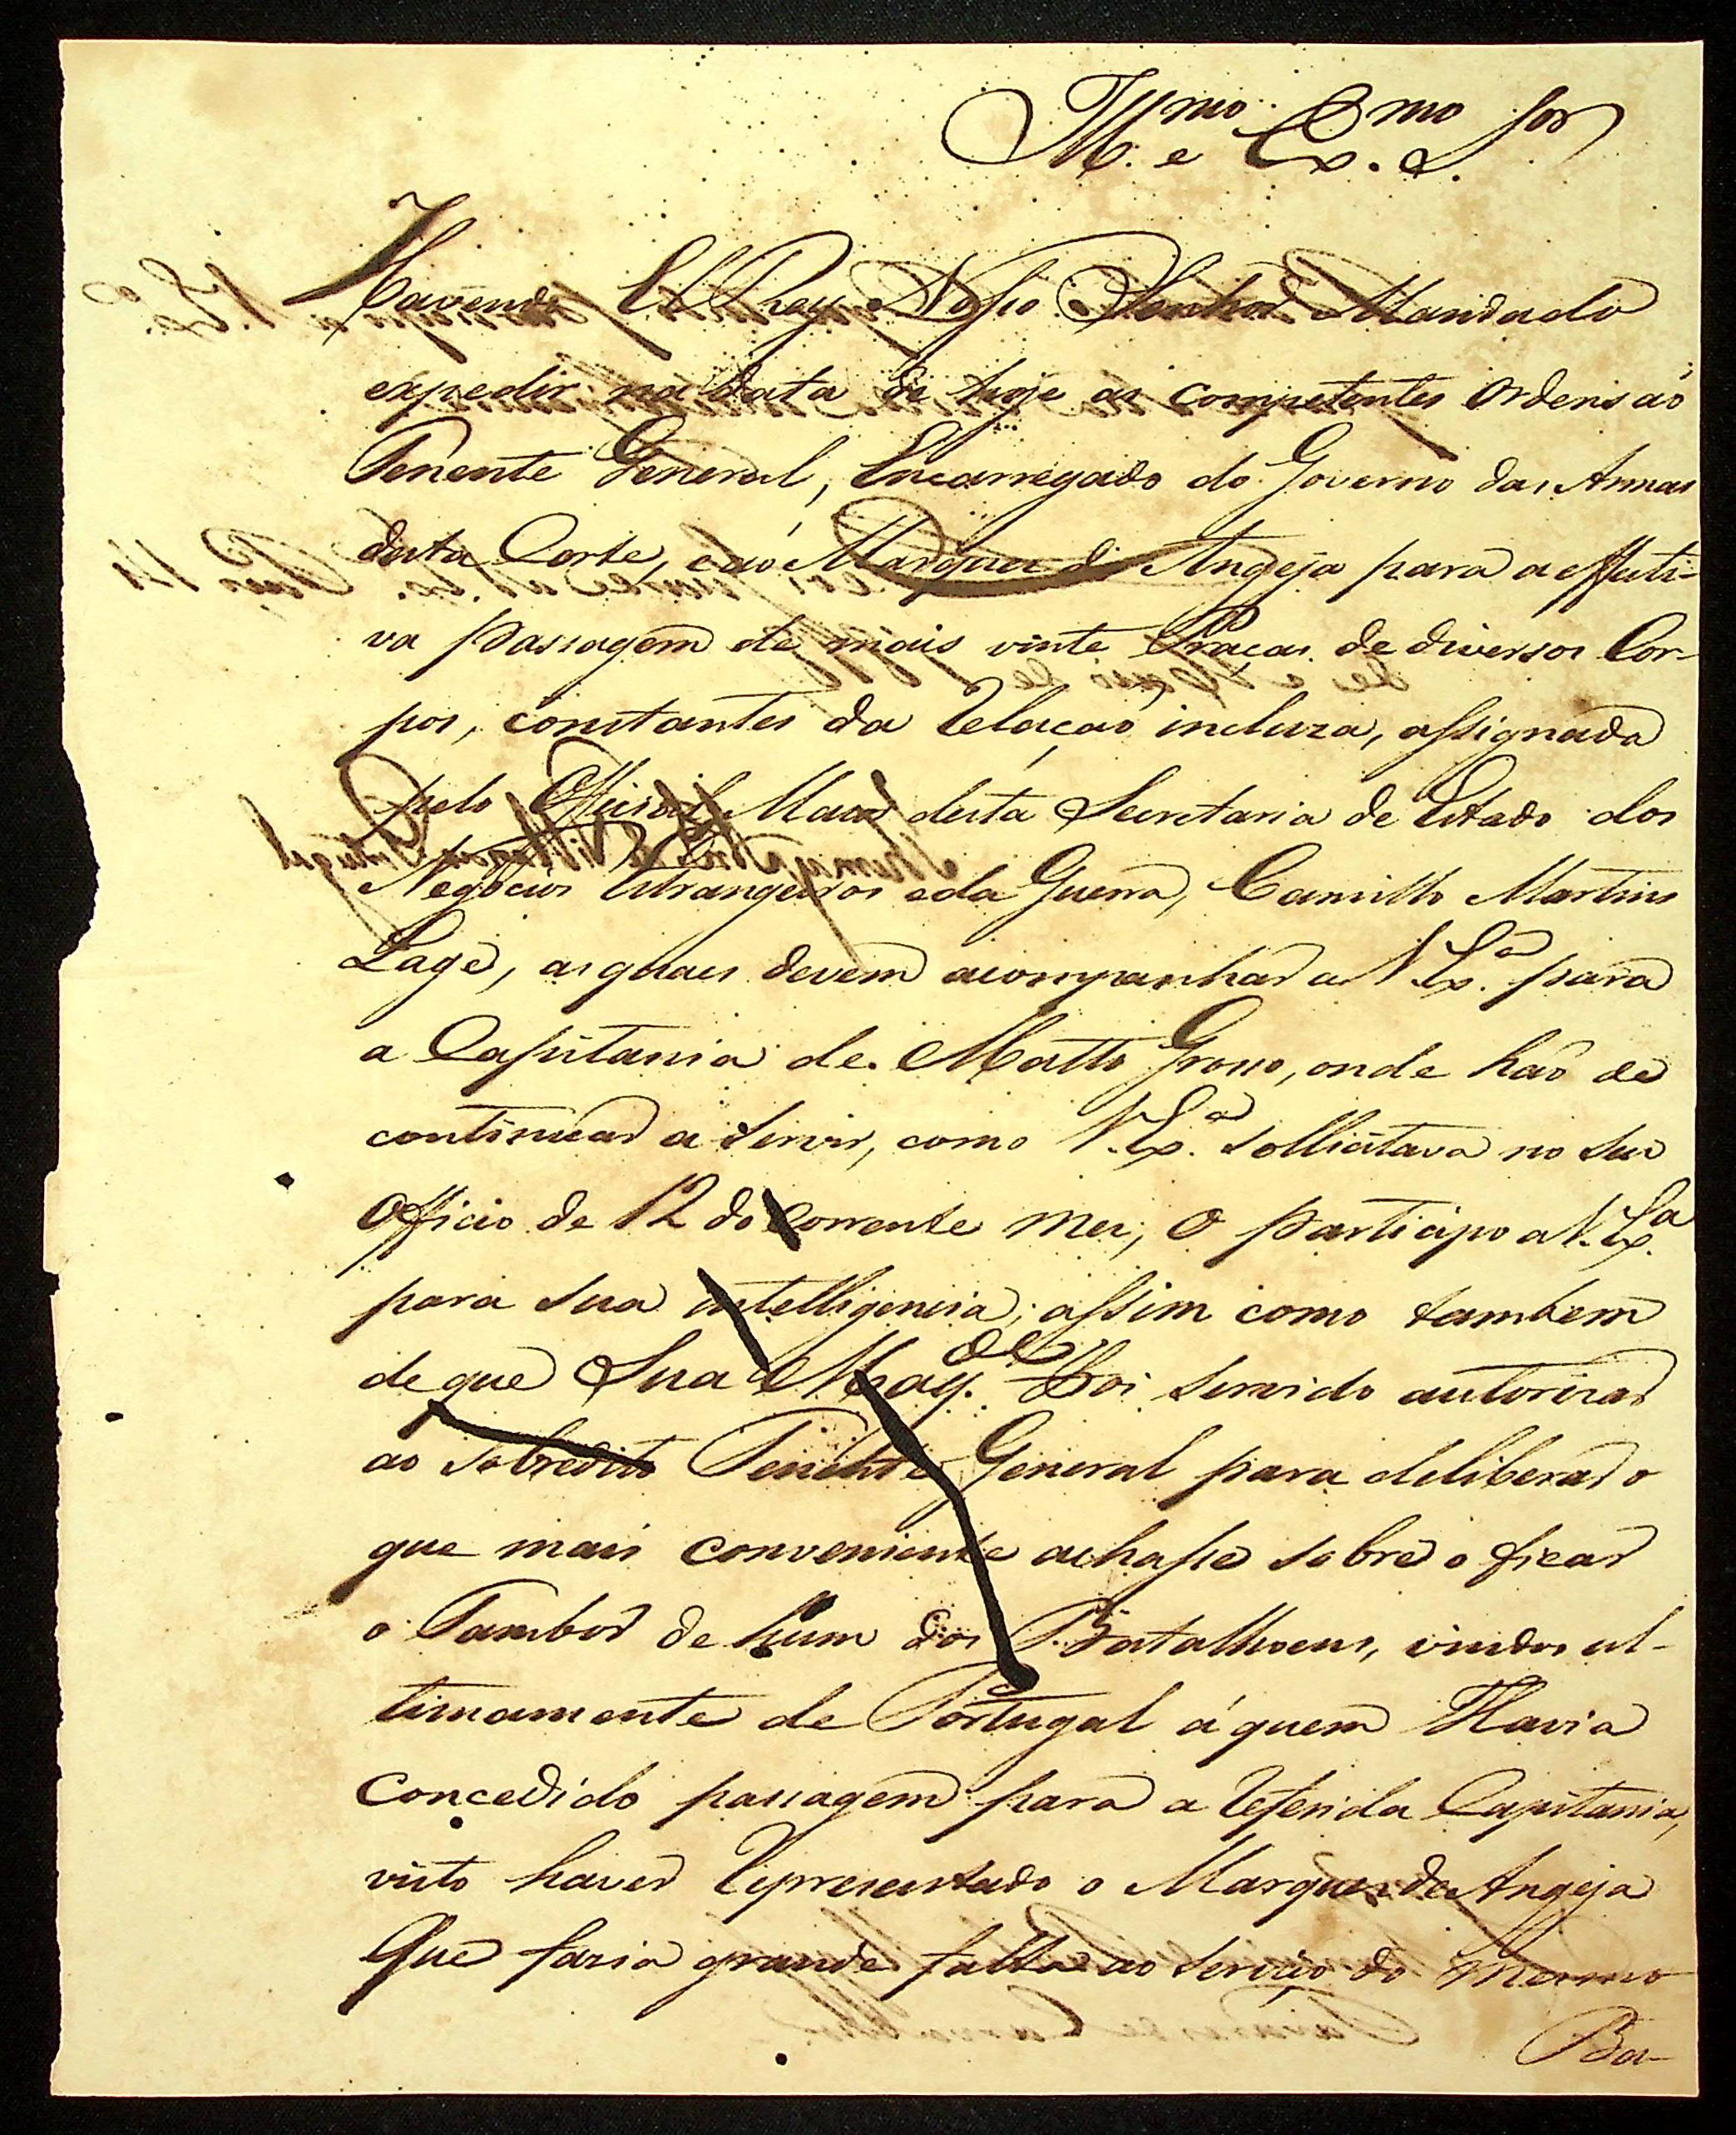 Ill.mo e Ex.mo Sor.
Havendo El Rey Nosso Senhor Mandado
expedir na data de hoje as competentes Ordens ao
Tenente General, Encarregado do Governo das Armas
desta Corte, e ao Marquez de Angeja para a effecti-
va passagem de mais vinte Praças de diversos Cor-
pos, constantes da Relação incluza, assignada
pelo Official Maior desta Secretaria de Estado dos
Negocios Estrangeiros e da Guerra, Camillo Martins
Lage, as quaes devem acompanhar a V. Ex.a para
a Capitania de Matto Grosso, onde hão de
continuar a servir, como V. Ex.a sollicitava no seu
Officio de 12 do corrente mez; O participo a V. Ex.a
para sua intelligencia; assim como tambem
de que Sua Mag.de Foi servido autorizar
ao sobredito Tenente General para deliberar o
que mais conveniente achasse sobre o ficar
o Tambor de hum dos Batalhoens, vindos ul-
timamente de Portugal á quem Havia
concedido passagem para a referida Capitania,
visto haver representado o Marquez de Angeja
que fazia grande falta ao serviço do mesmo
Ba-